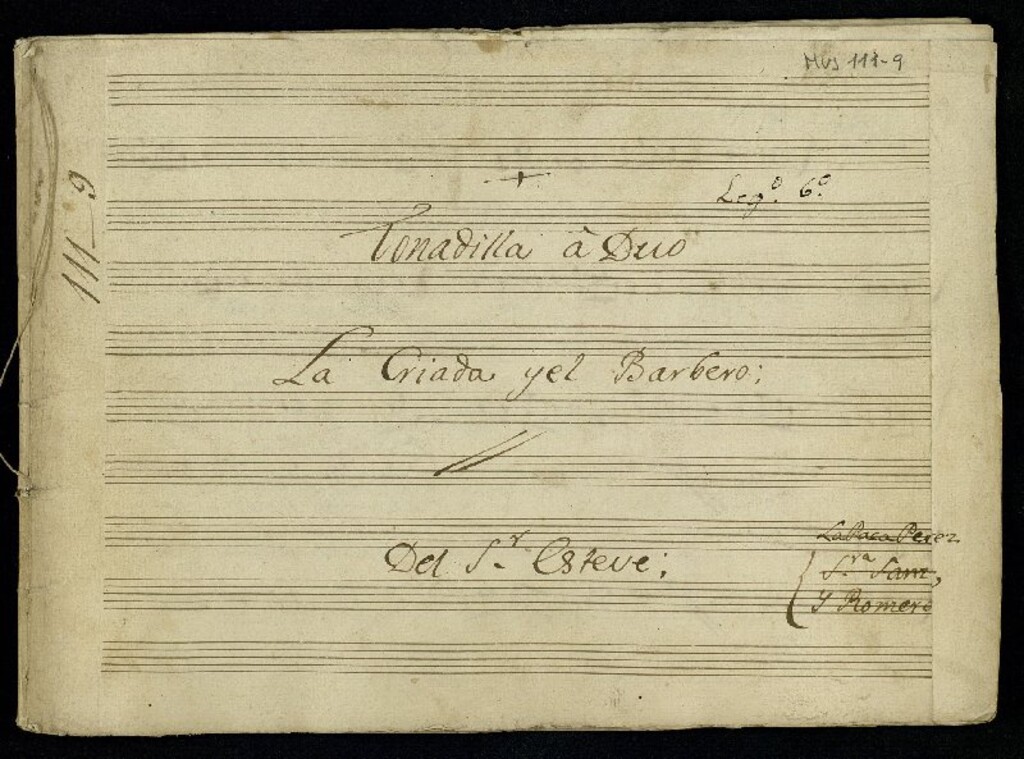 MUS 111-9
111-9
+
Leg.º 6.º
Tonadilla à Duo
La Criada y el Barbero;
Del S.r Esteve;
La Paca Perez
S.ra Sanz,
Y Romero